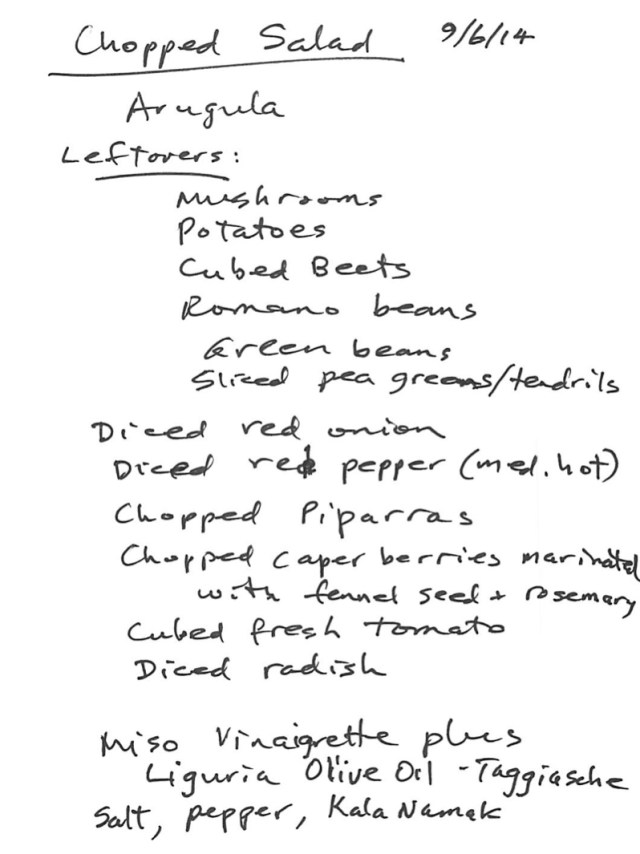 Chopped Salad 9/6/14
Arugula
Leftovers:
Mushrooms
Potatoes
Cubed Beets
Romano beans
Green beans
Sliced pea greens/tendrils
Diced red onion
Diced red pepper (med. hot)
Chopped Piparras
Chopped caper berries marinated
with fennel seed + rosemary
Cubed fresh tomato
Diced radish
Miso Vinaigrette plus
Liguria Olive Oil - Taggiasche
Salt, pepper, Kala Namak